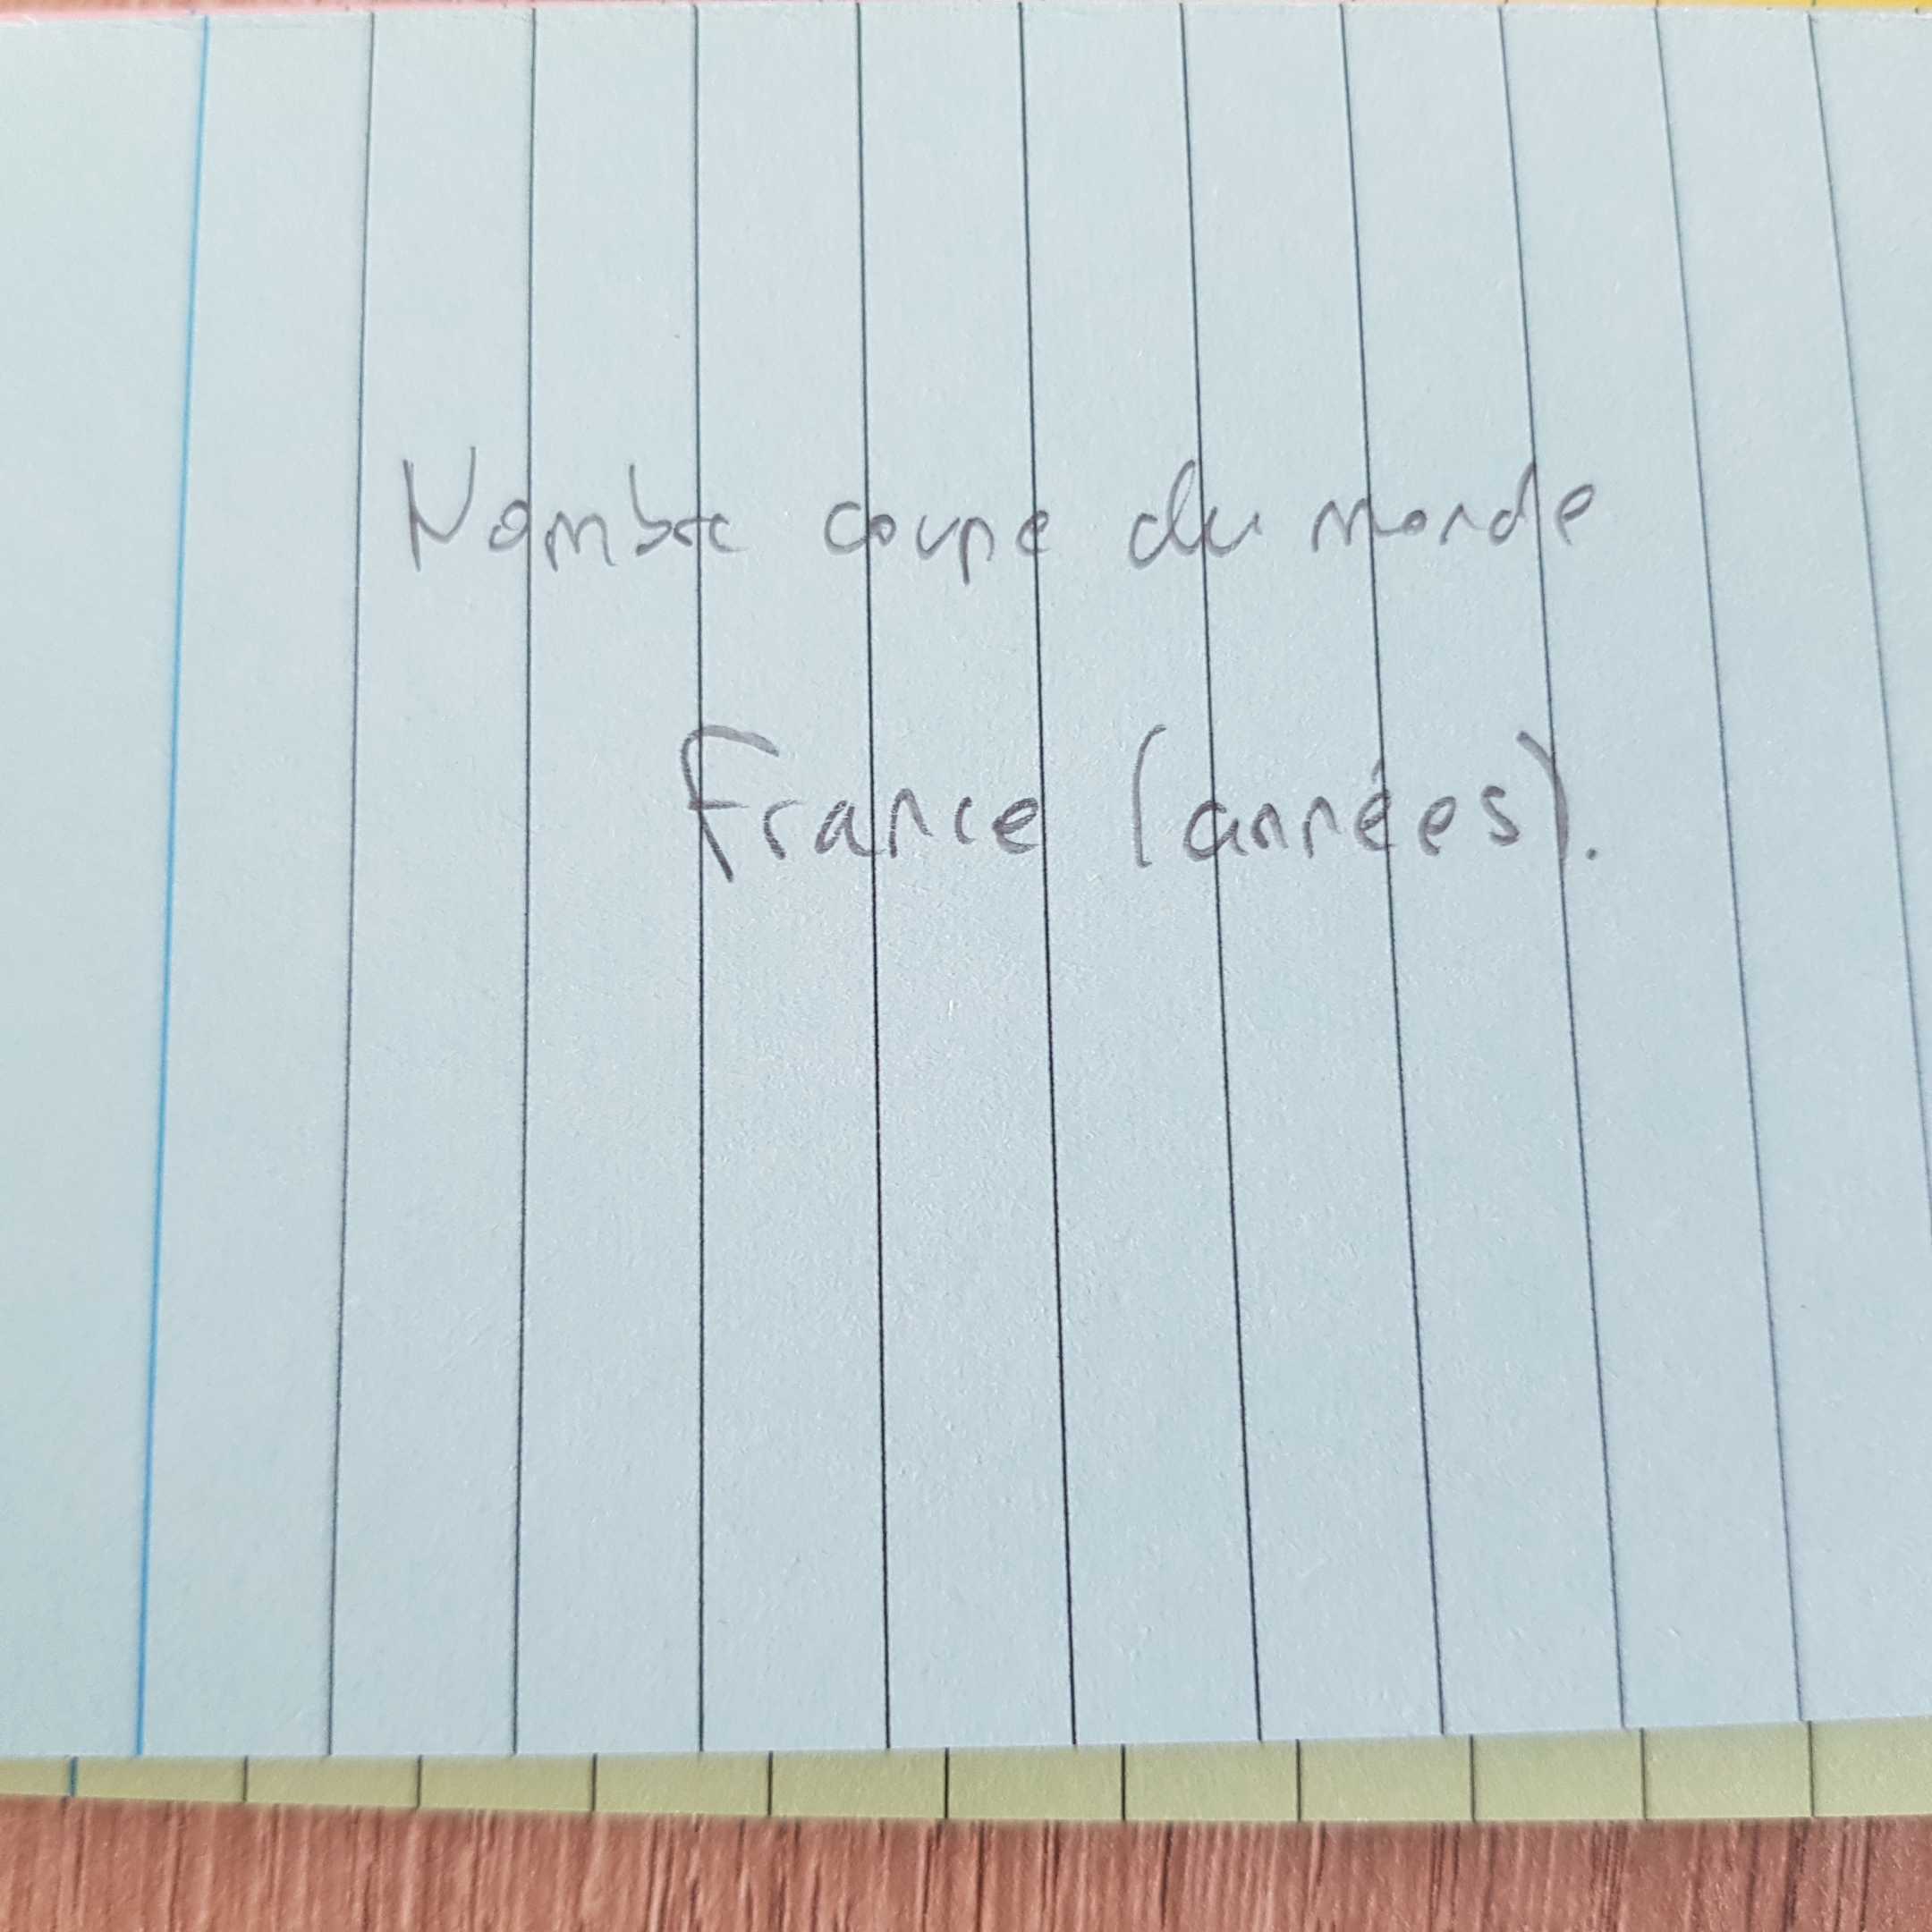 Nombre coupe du monde
France (années).